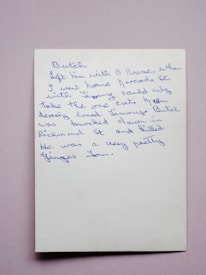 Butch
left him with B Brose when
I went home Records St
with Tommy could only
take the one cat Mum
dearly loved Tommy. Butch
was knocked down in
Richmond St and killed
He was a very pretty
Ginger Tom